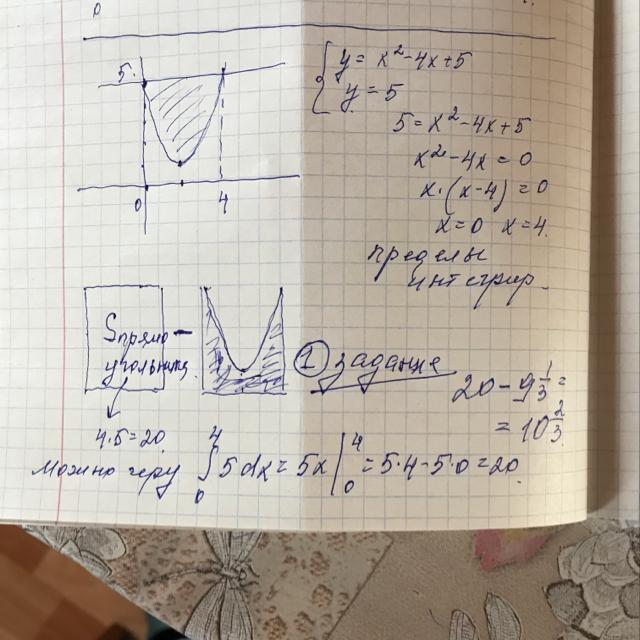 5
0
4
y = x² - 4x + 5
y = 5
5 = x² - 4x + 5
x² - 4x = 0
x · (x - 4) = 0
x = 0 x = 4.
пределы
интегрир.
Sпрямо-
угольника
① задание
20 - 9 1/3 =
= 10 2/3.
4·5 = 20
Можно
∫₀⁴ 5dx = 5x |₀⁴ = 5·4 - 5·0 = 20.